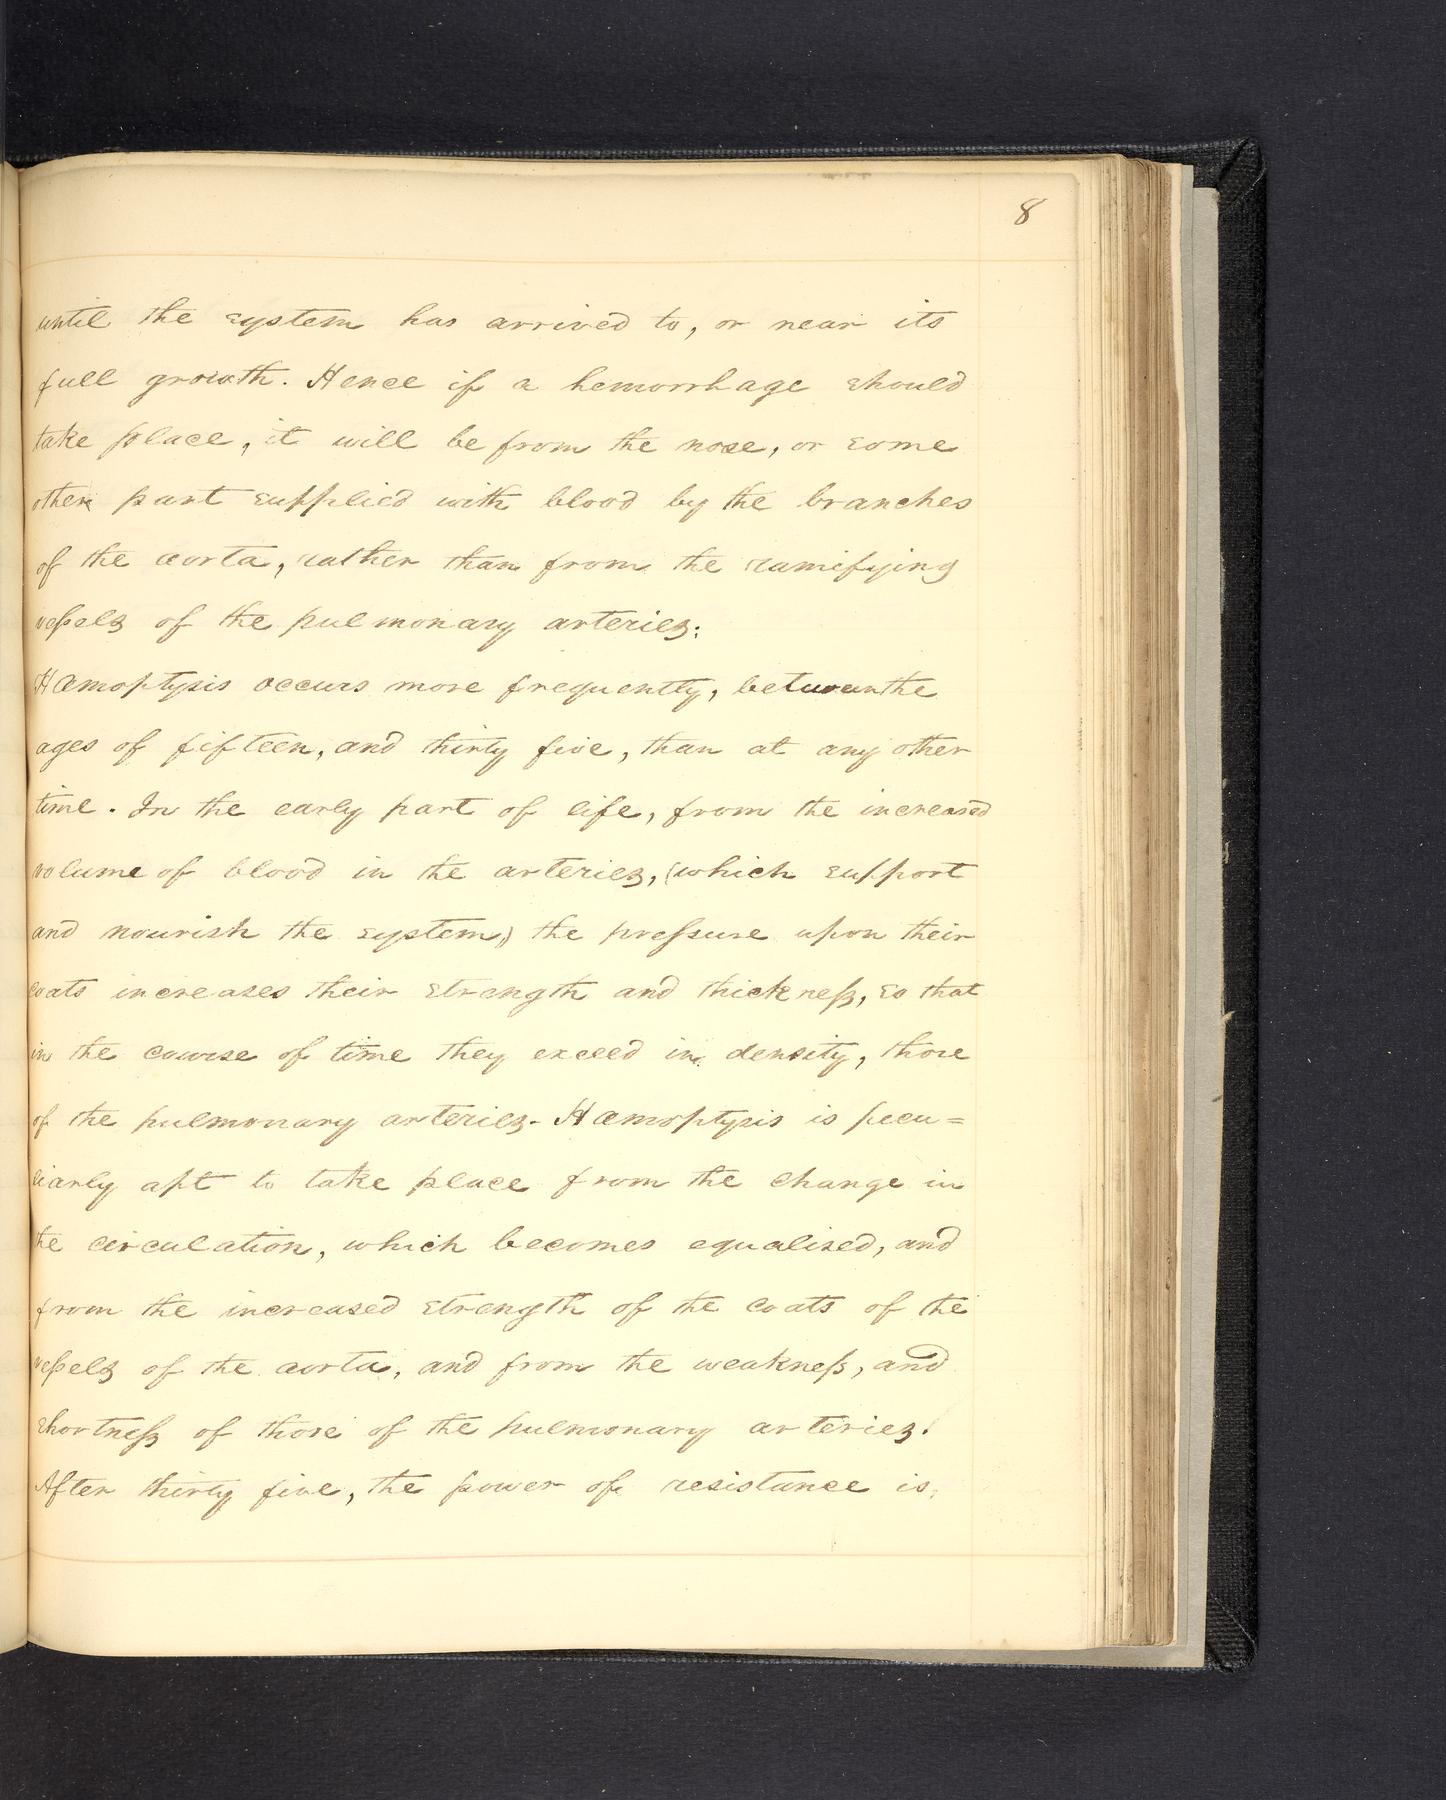 8
until the system has arrived to, or near its
full growth. Hence if a hemorrhage should
take place, it will be from the nose, or some
other part supplied with blood by the branches
of the aorta, rather than from the ramifying
veſsels of the pulmonary arteries.
Hæmoptysis occurs more frequently, between the
ages of fifteen, and thirty five, than at any other
time. In the early part of life, from the increased
volume of blood in the arteries, (which support
and nourish the system) the preſsure upon their
coats increases their strength and thickneſs, so that
in the course of time they exceed in density, those
of the pulmonary arteries - Hæmoptysis is pecu=
liarly apt to take place from the change in
the circulation, which becomes equalised, and
from the increased strength of the coats of the
veſsels of the aorta, and from the weakneſs, and
shortneſs of those of the pulmonary arteries.
After thirty five, the power of resistance is